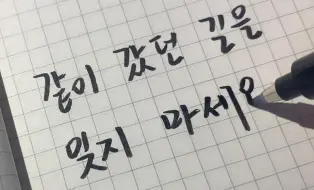 같이 갔던 길을
잊지 마세요